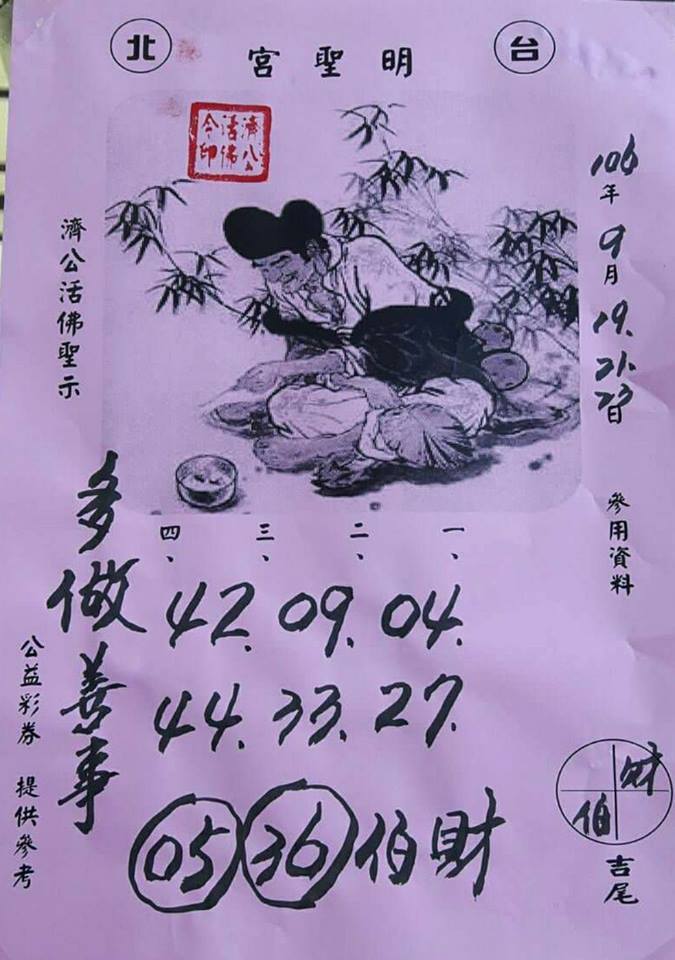 台北
明聖宮
濟公
活佛
令印
106年9月19.21.23日
參用資料
濟公活佛聖示
一、二、三、四、
42.09.04.
44.33.27.
05 36 伯財
多做善事
公益彩券 提供參考
財
伯
吉尾